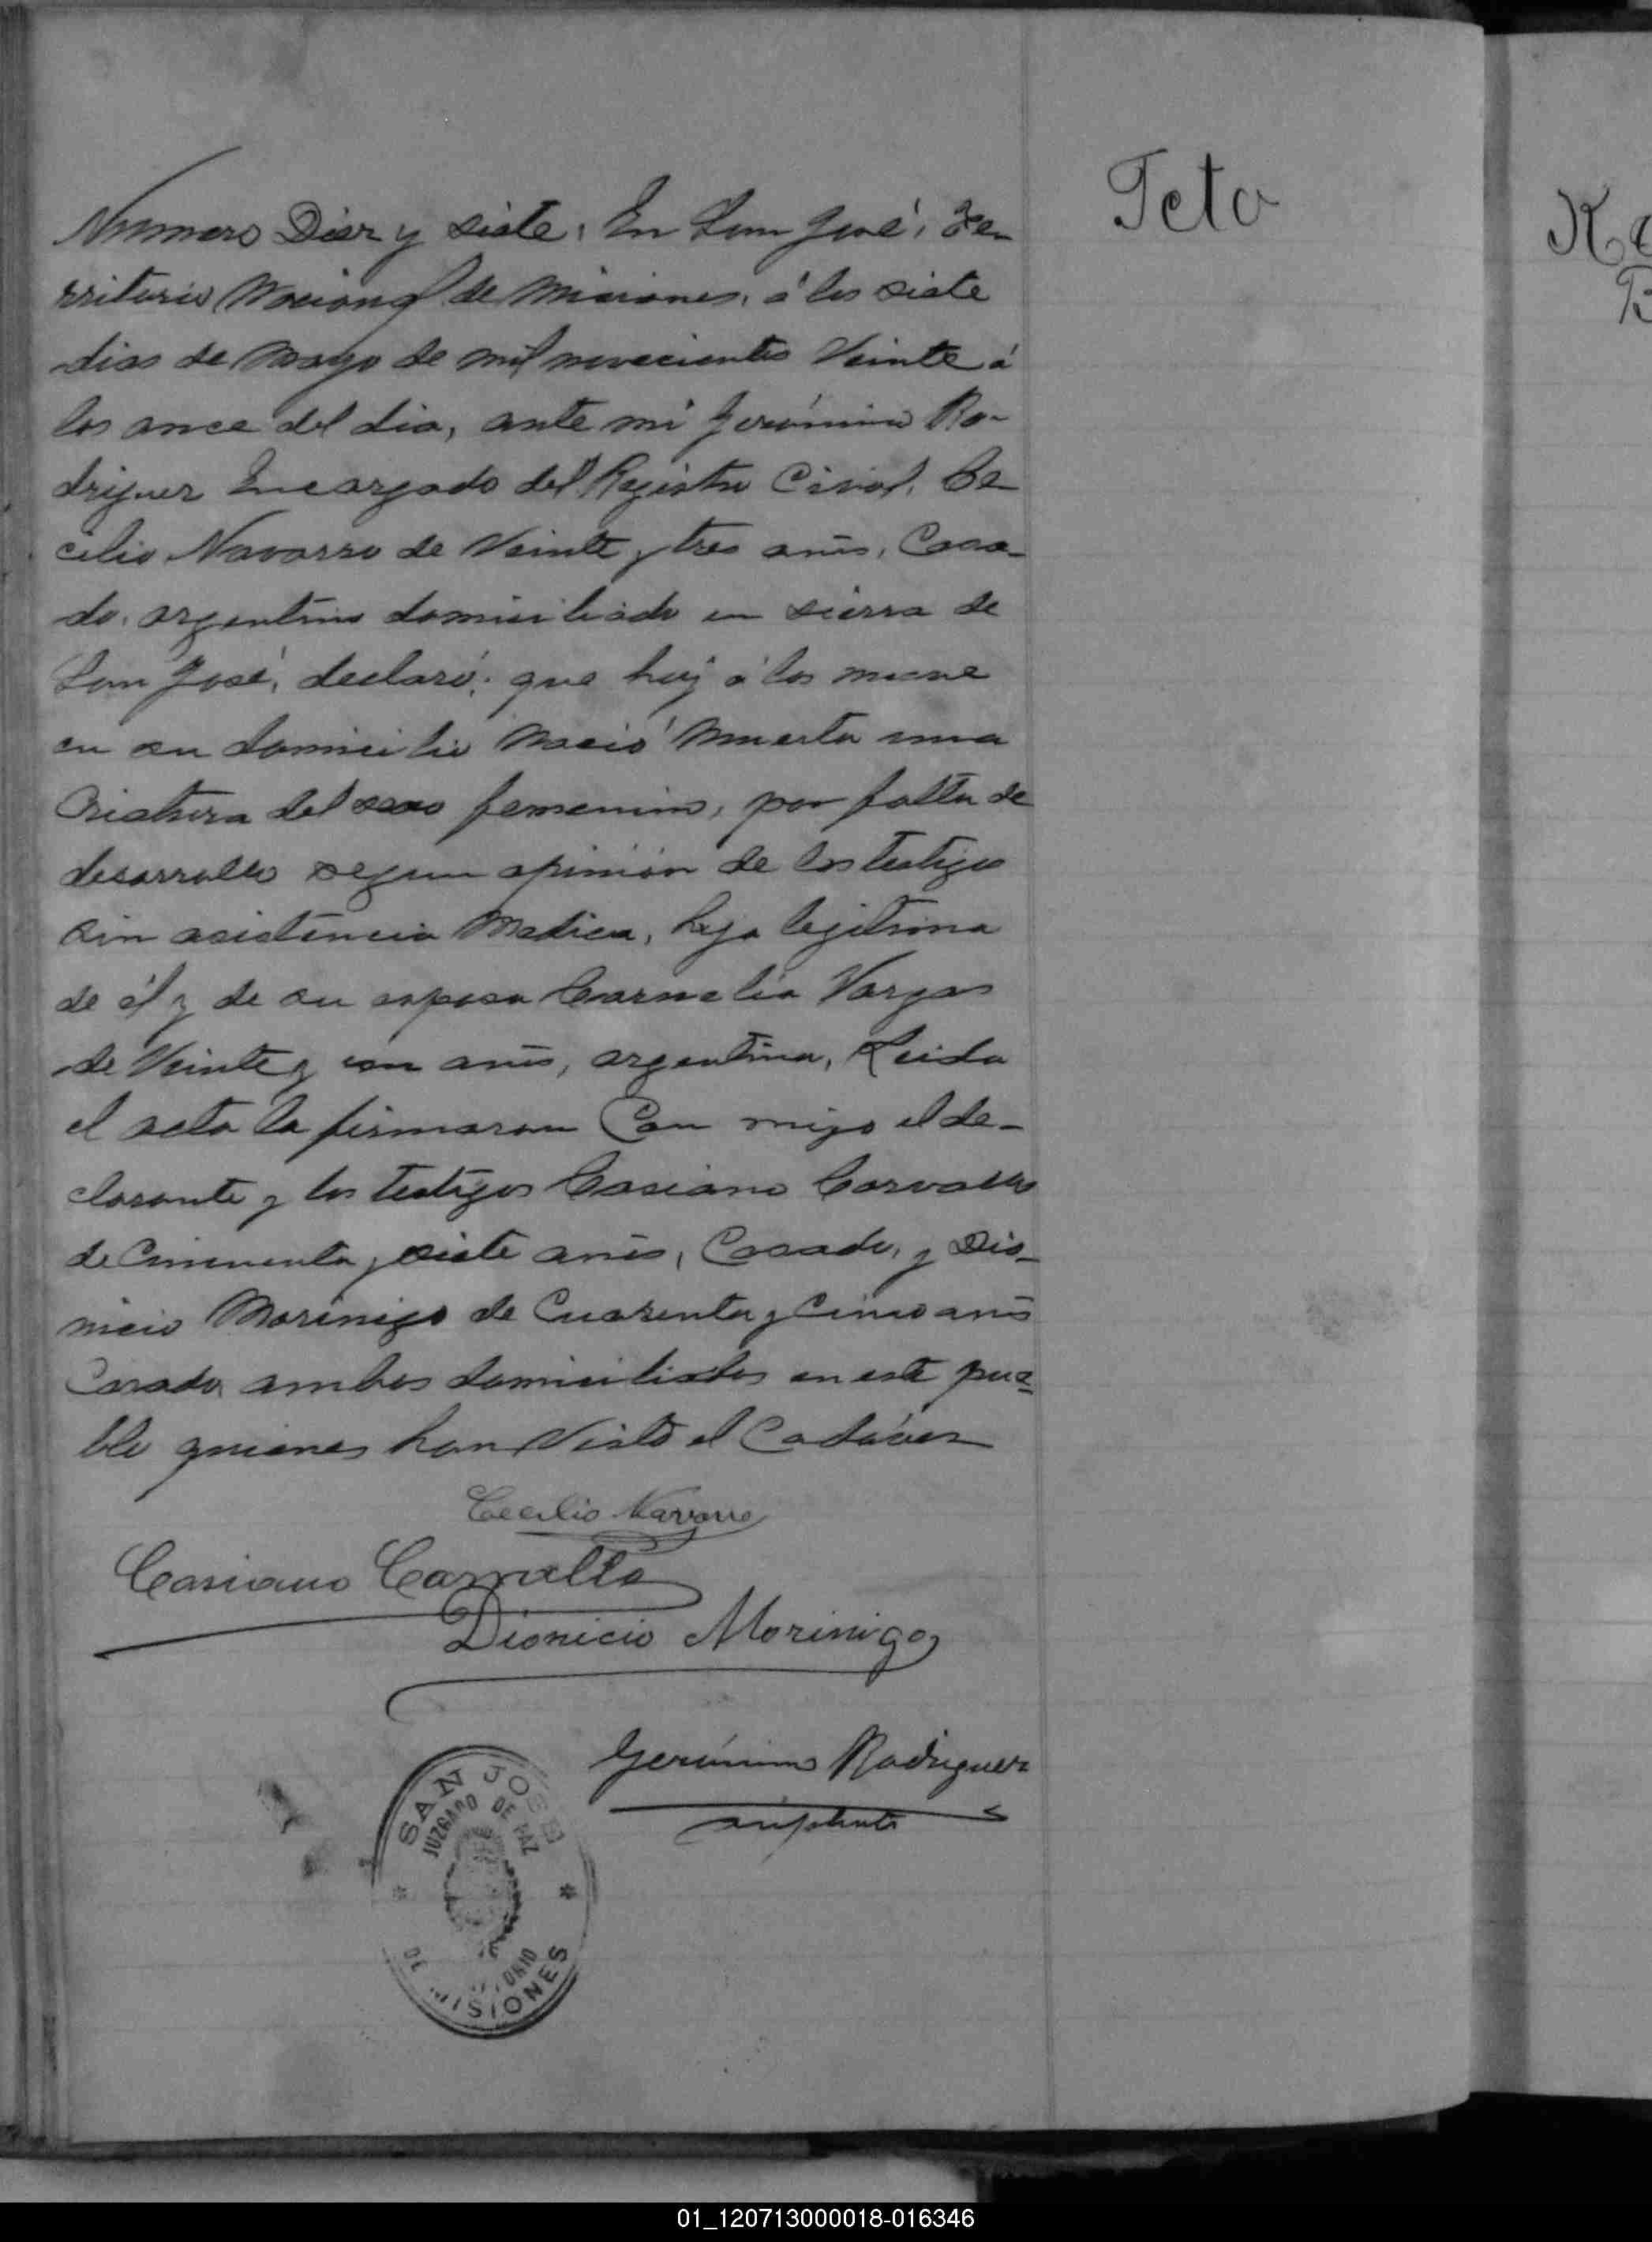 Numero Diez y siete. En San José, Te-
rritorio Nacional de Misiones, á los siete
dias de Mayo de mil novecientos Veinte á
las once del dia, ante mi Gerónimo Ro-
driguez Encargado del Registro Civil, Ce-
cilio Navarro de Veinte y tres años, Casa-
do, argentino domiciliado en sierra de
San José, declaró; que hoy á las nueve
en su domicilio Nació Muerta una
Criatura del sexo femenino, por falta de
desarrollo segun opinión de los testigos
sin asistencia Medica, hija legitima
de él y de su esposa Carmelia Vargas
de Veinte y un años, argentina, Leida
el acta la firmaron Con migo el de-
clarante y los testigos Casiano Carvallo
de Cincuenta y siete años, Casado, y Dio-
nicio Morinigo de Cuarenta y Cinco años
Casado, ambos domiciliados en este pue-
blo quienes han Visto el Cadáver
Cecilio Navarro
Casiano Carvallo
Dionicio Morinigo
Gerónimo Rodriguez
suplente
SAN JOSE
JUZGADO DE PAZ
DE MISIONES
Feto
01_120713000018-016346